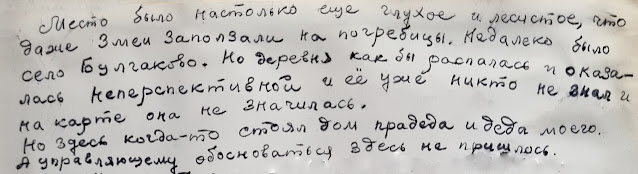 Место было настолько еще глухое и лесистое, что
даже змеи заползали на погребицы. Недалеко было
село Булгаково. Но деревня как бы распалась и оказа-
лась неперспективной и её уже никто не знал и
на карте она не значилась.
Но здесь когда-то стоял дом прадеда и деда моего.
А управляющему обосноваться здесь не пришлось.